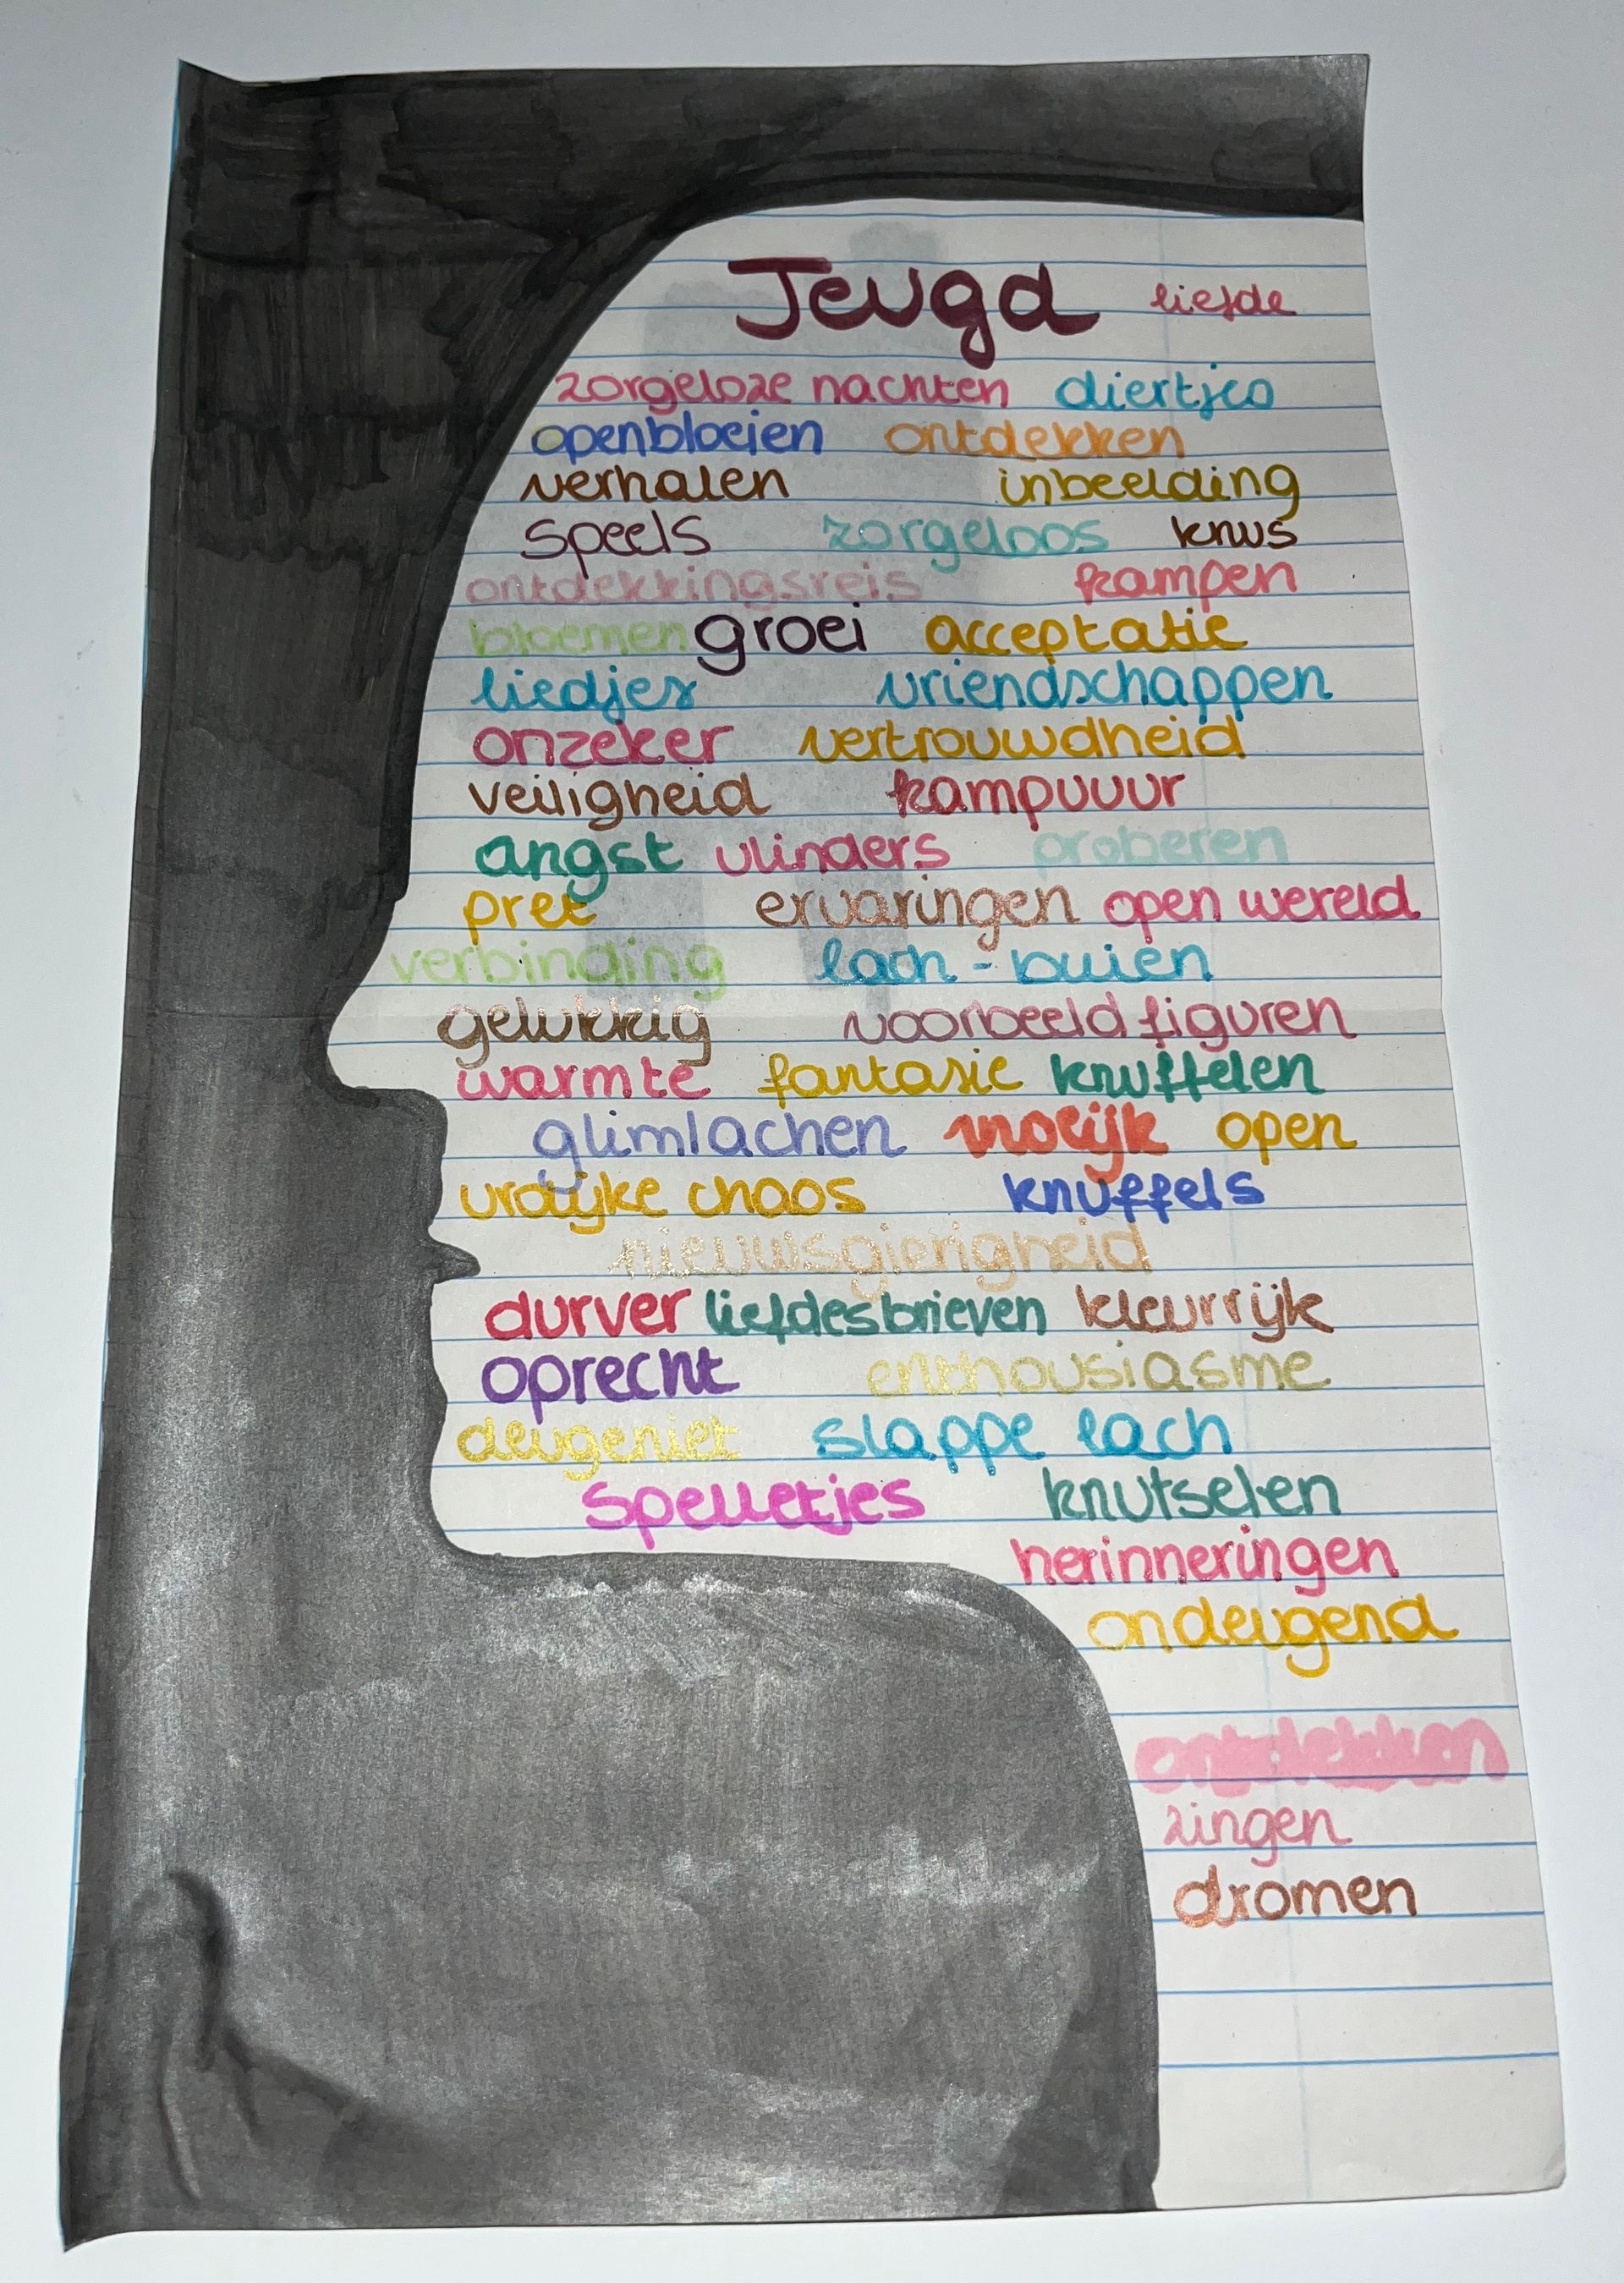 Jeugd liefde
zorgeloze nachten diertjes
openbloeien ontdekken
verhalen inbeelding
speels zorgeloos knus
ontdekkingsreis kampen
bloemen groei acceptatie
liedjes vriendschappen
onzeker vertrouwdheid
veiligheid kampvuur
angst vlinders proberen
pret ervaringen open wereld
verbinding lach-buien
gelukkig voorbeeld figuren
warmte fantasie knuffelen
glimlachen moeijk open
vrolijke chaos knuffels
nieuwsgierigheid
durver liefdesbrieven kleurrijk
oprecht enthousiasme
deugeniet slappe lach
spelletjes knutselen
herinneringen
ondeugend
ontdekken
zingen
dromen